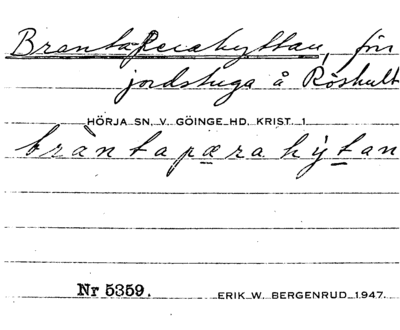 Brantapærahyttan, förr
jordstuga å Röshult
HÖRJA SN. V. GÖINGE HD. KRIST. 1
bràntapæra hỳtan
Nr 5359.
ERIK W. BERGENRUD 1947.